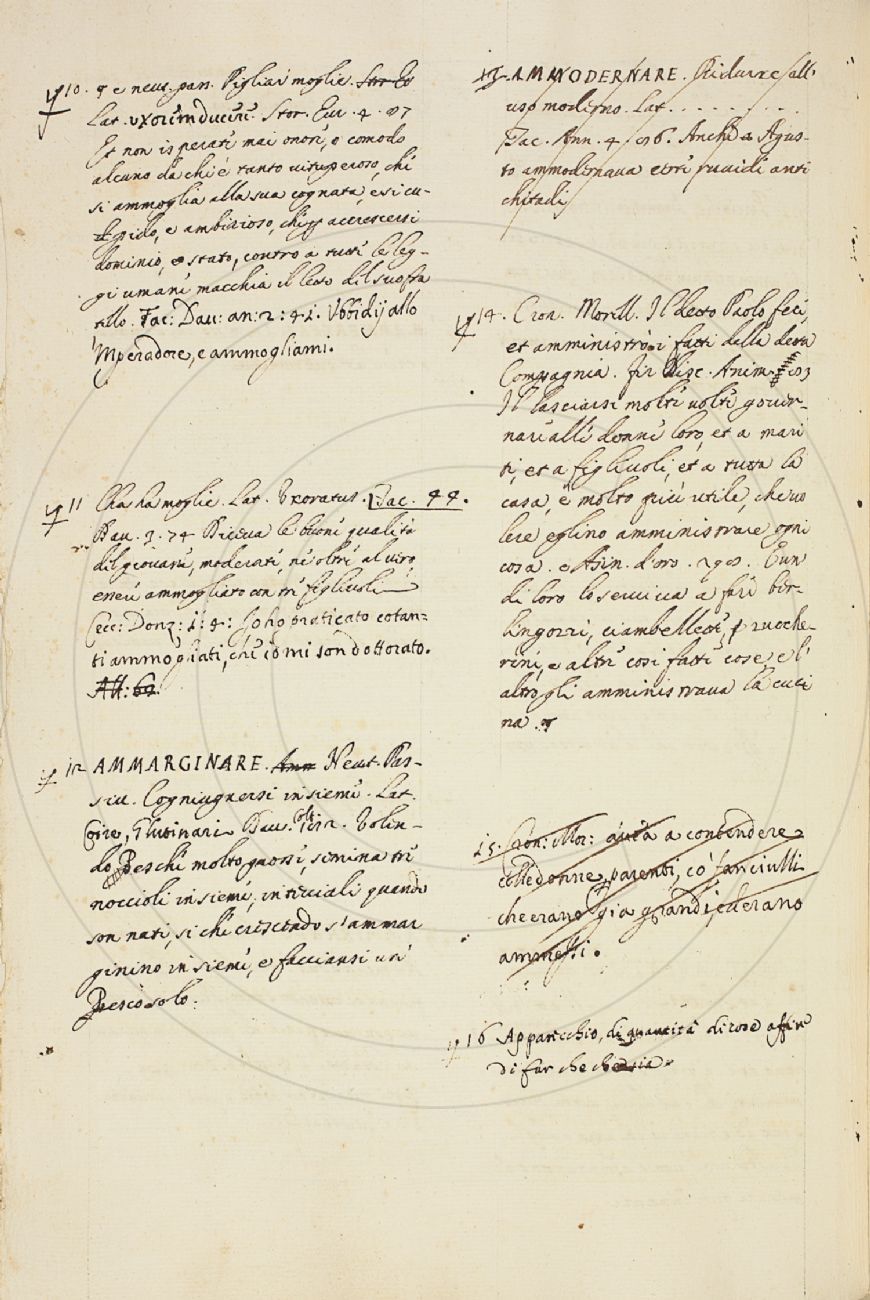 10. ⁊ e neut. pass. Pigliar moglie. Stor. Eu
Lat. uxorem ducere. Stor. Eur. 4. 87
Et non isperate mai onore, o comodo
alcuno da chi è tanto vituperoso, che
si ammoglia alla sua cognata, e sì cu-
pido, e ambizioso, che p accrescersi
dominio, o stato, contro a tutte le leg-
gi umane macchia il letto del suo fra
tello. Tac: Dav: an: 2: 42. Ubbidij allo
'Mperadore, e ammogliami.
11 Che ha moglie. Lat. Uxoratus. Tac. 44.
Dav. 3. 74 Diceva le buone qualità
del giovane, moderati, nè oltre al vero,
essere ammogliato con tre figliuoli
Cecc: Donz: 1: 4: Io ho praticato cotan=
ti ammogliati, che io mi son dottorato.
Att: 62.
12 AMMARGINARE. Amm Neut. Pas-
siv. Congiugnersi insieme. Lat.
Coire, Glutinari. Dav. Colt. 172. Volen-
do Peschi molto grossi, semina tre
noccioli insieme, intrecciali quando
son nati, sì che crescendo s'ammar
ginino insieme, e facciansi un
Pesco solo.
13. AMMODERNARE. Ridurre all'
uso moderno. Lat. . . . . . . .
Tac. Ann. 4. 96. Anche Agus-
to ammodernava certe ruvide anti
chitadi
14. Cron. Morell. Il detto Paolo fece,
et amministrò i fatti della detta
Compagnia. Fir. Disc. Anim. 93
Il lasciarsi molte volte gover-
nare alle donne loro, et a mari
ti, et a figliuoli, et a tutta la
casa, è molto più utile, che vo
lere eglino amministrare ogni
cosa. e Asin. d'oro. 290. E un
di loro lo serviva a fare ber-
lingozzi, ciambellette, zucche-
rini, e altre così fatte cose, e l'
altro gli amministrava la cuci
na. ⁊
15. Cron: Mor: aveva a contendere
colle donne, parenti, co' fanciulli
che erano già grandi, ed erano
ammessi.
16 Apparecchio, di quantità di cose a fine
di far che che sia.